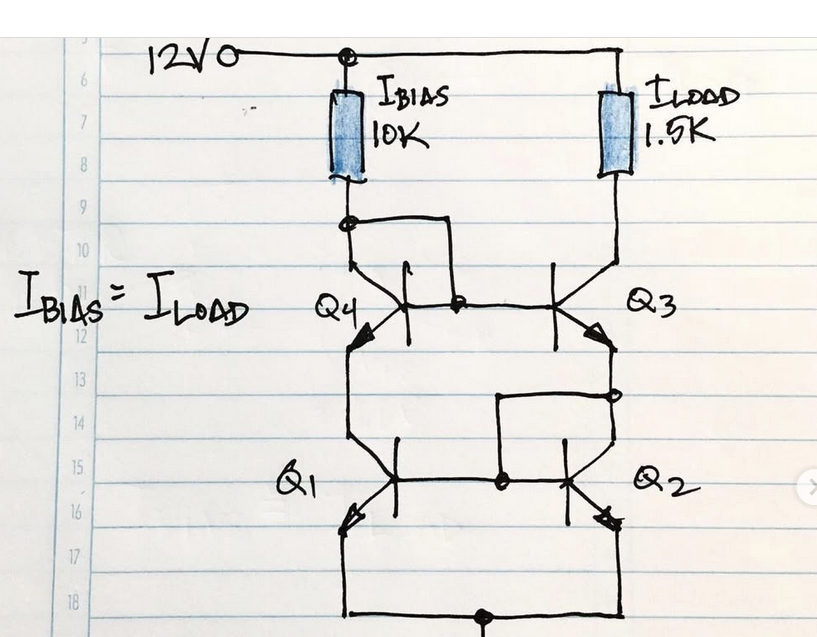 12V
IBIAS
10K
ILOAD
1.5K
5
6
7
8
9
10
11
12
13
14
15
16
17
18
IBIAS = ILOAD
Q4
Q3
Q1
Q2